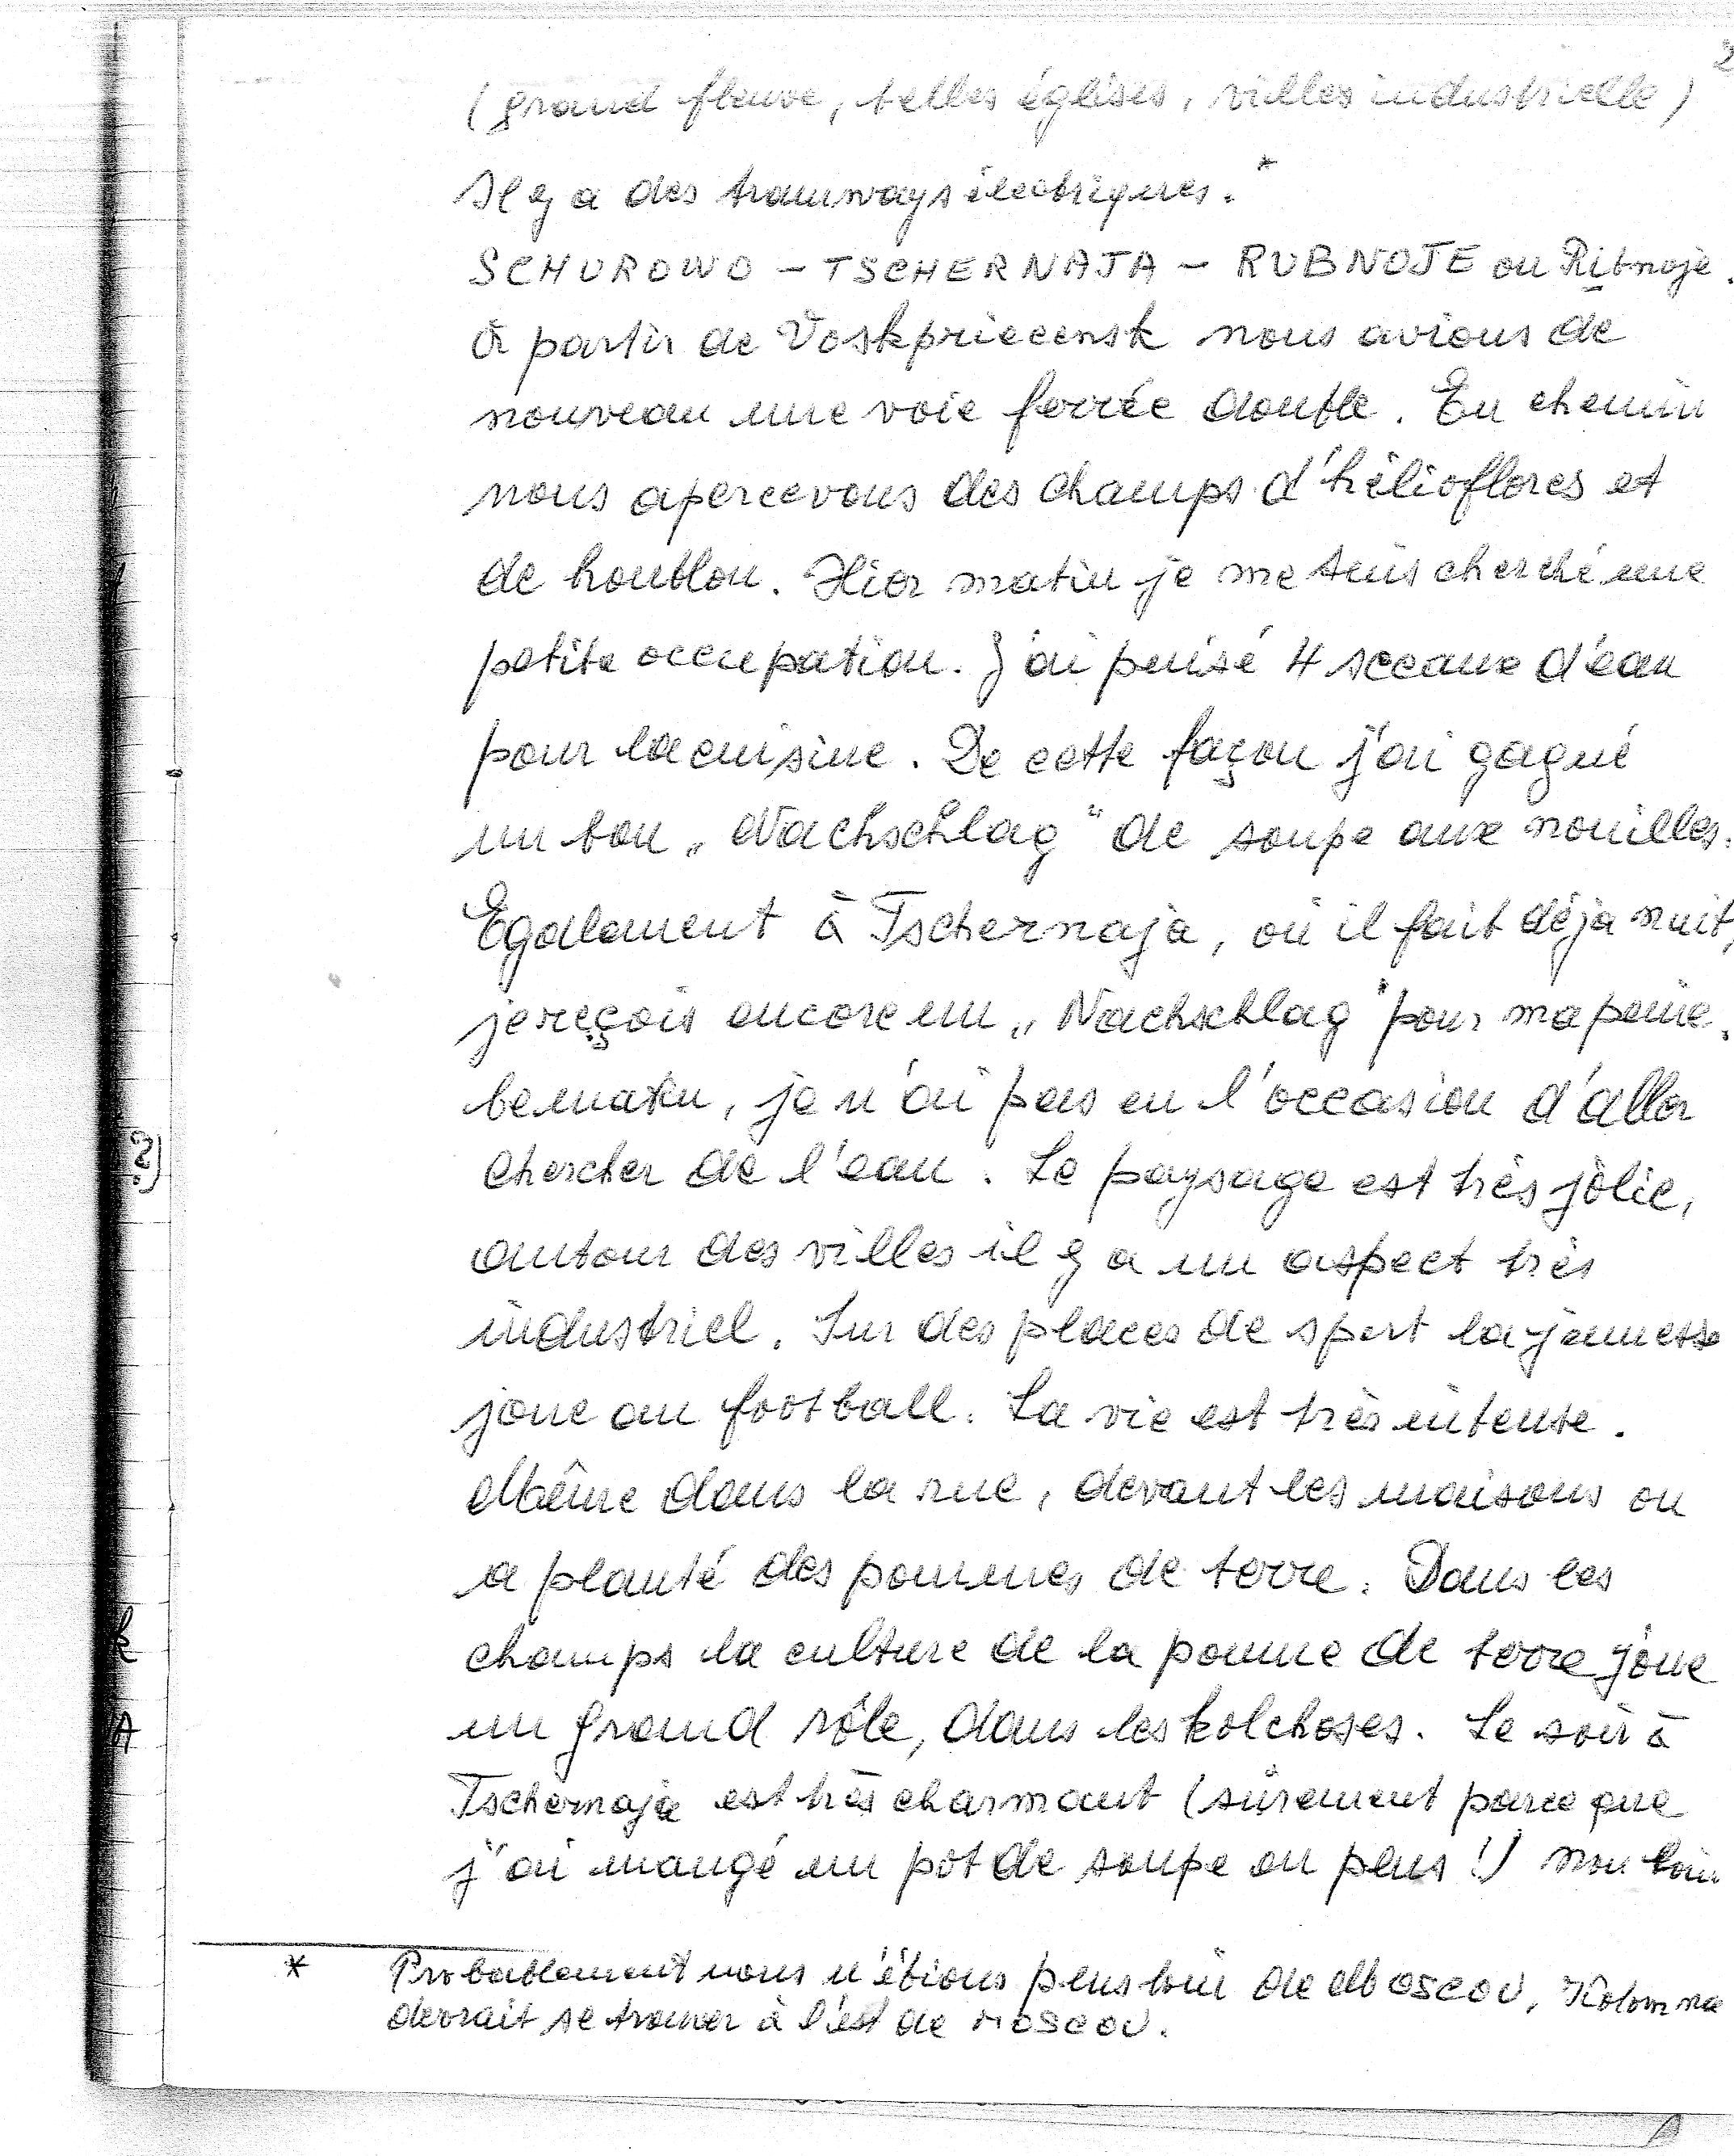 2
(grand fleuve, belles églises, villes industrielle)
Il y a des tramways électriques.*
SCHUROWO – TSCHERNAJA – RUBNOJE ou Ribnoje.
à partir de Voskpriecensk nous avions de
nouveau une voie ferrée double. En chemin
nous apercevons des champs d'hélioflores et
de houblon. Hier matin je me suis cherché une
petite occupation. J'ai puisé 4 sceaux d'eau
pour la cuisine. De cette façon j'ai gagné
un bon „Nachschlag" de soupe aux nouilles.
Egalement à Tschernaja, où il fait déja nuit,
je reçois encore un „Nachschlag" pour ma peine.
Ce matin, je n'ai pas eu l'occasion d'aller
chercher de l'eau. Le paysage est très jolie,
autour des villes il y a un aspect très
industriel. Sur des places de sport la jeunesse
joue au football. La vie est très intense.
Même dans la rue, devant les maisons on
a planté des pommes de terre. Dans les
champs la culture de la pomme de terre joue
un grand rôle, dans les kolchoses. Le soir à
Tschernaja est très charmant (sûrement parce que
j'ai mangé un pot de soupe en plus!) non loin
* Probablement nous n'étions plus loin de Moscou, Kolomna
devrait se trouver à l'est de Moscou.
?)